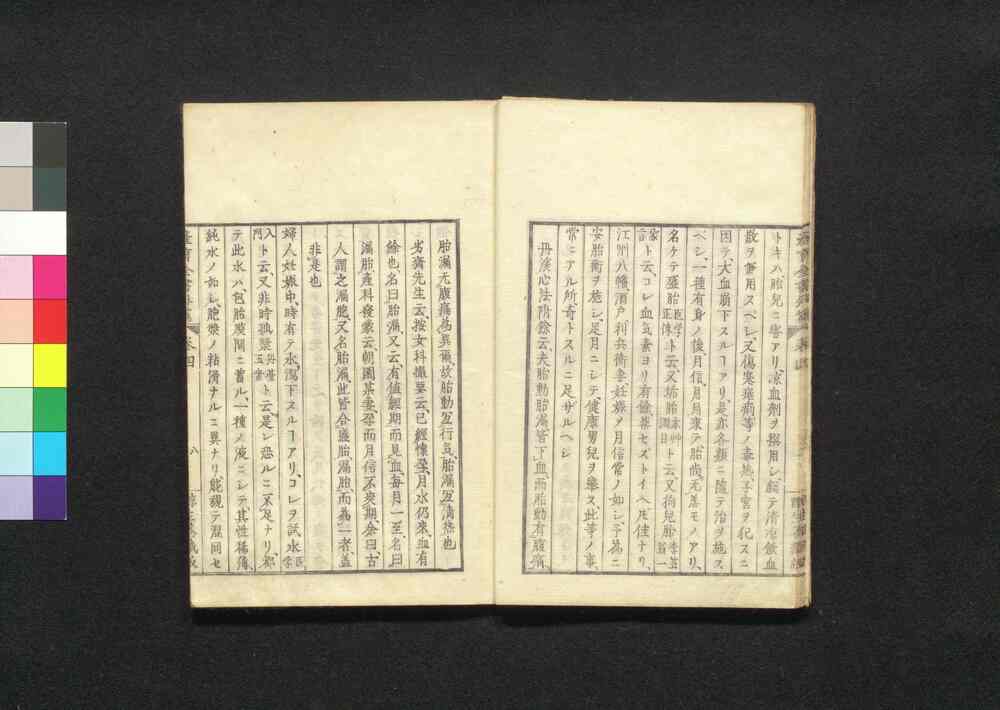 トキハ胎兒ニ害アリ、凉血劑ヲ撰用シ、
散ヲ兼用スベシ、又傷寒
因テ、大血崩下スルヿアリ、是亦各類ニ隨テ治ヲ施ス
ベシ、一種有身ノ後月信、月月來テ、胎尚无恙モノアリ、
名ケテ盛胎醫学正傳ト云、又垢胎本艸綱目ト云、又狗兒胎
家言ト云、コレ血氣素ヨリ有餘
江州八幡酒戸利兵衛妻妊娠メ月信常ノ如シ、予爲ニ
安胎術ヲ施シ、足月ニシテ、健康男兒ヲ擧ス、此等ノ事、
常ニアル所、奇トスルニ足ザルヘシ
丹溪心法附餘云、夫胎動胎漏皆下血、而胎動有腹痛、
胎漏无腹痛爲異爾、故胎動宜行氣、胎漏宜清熱也
劣齋先生云、按女科撮要云、已經懷孕、月水仍來、血有
餘也、名曰胎漏、又云有值經期而見血、每月一至、名曰
漏胎、產科發蒙云、朝國某妻孕而月信不爽期、余曰、古
人謂之漏胞、又名胎漏、此皆合盛胎、漏胎、而爲一者、蓋
非是也
婦人妊娠中、時有テ水瀉下スルヿアリ、コレヲ試水醫学
入門ト云、又非時孤漿ト云、是レ恐ルニ不足ナリ、都
テ此水ハ、包胎膜間ニ蓄ル、一種ノ液ニシテ、其性稀薄、
純水ノ如シ、胞漿ノ粘滑ナルニ異ナリ、能親テ混同セ
卷四
八